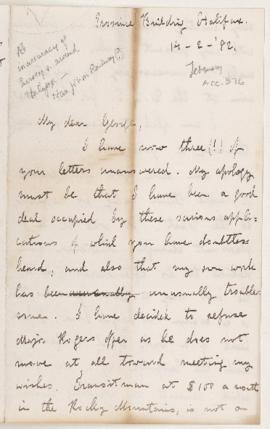 Province Building Halifax.
14-2-'82.
February
ACC. 376
As
inaccuracy of
Surveys around
My dear George,
I have now three (!!) of
your letters unanswered. My apology
must be that I have been a good
deal occupied by these various applic=
ations of which you have doubtless
heard, and also that my own work
has been unusually unusually trouble
some. I have decided to refuse
Major Rogers offer as he does not
move at all toward meeting my
wishes. Transitman at $100 a month
in the Rocky Mountains, is not an